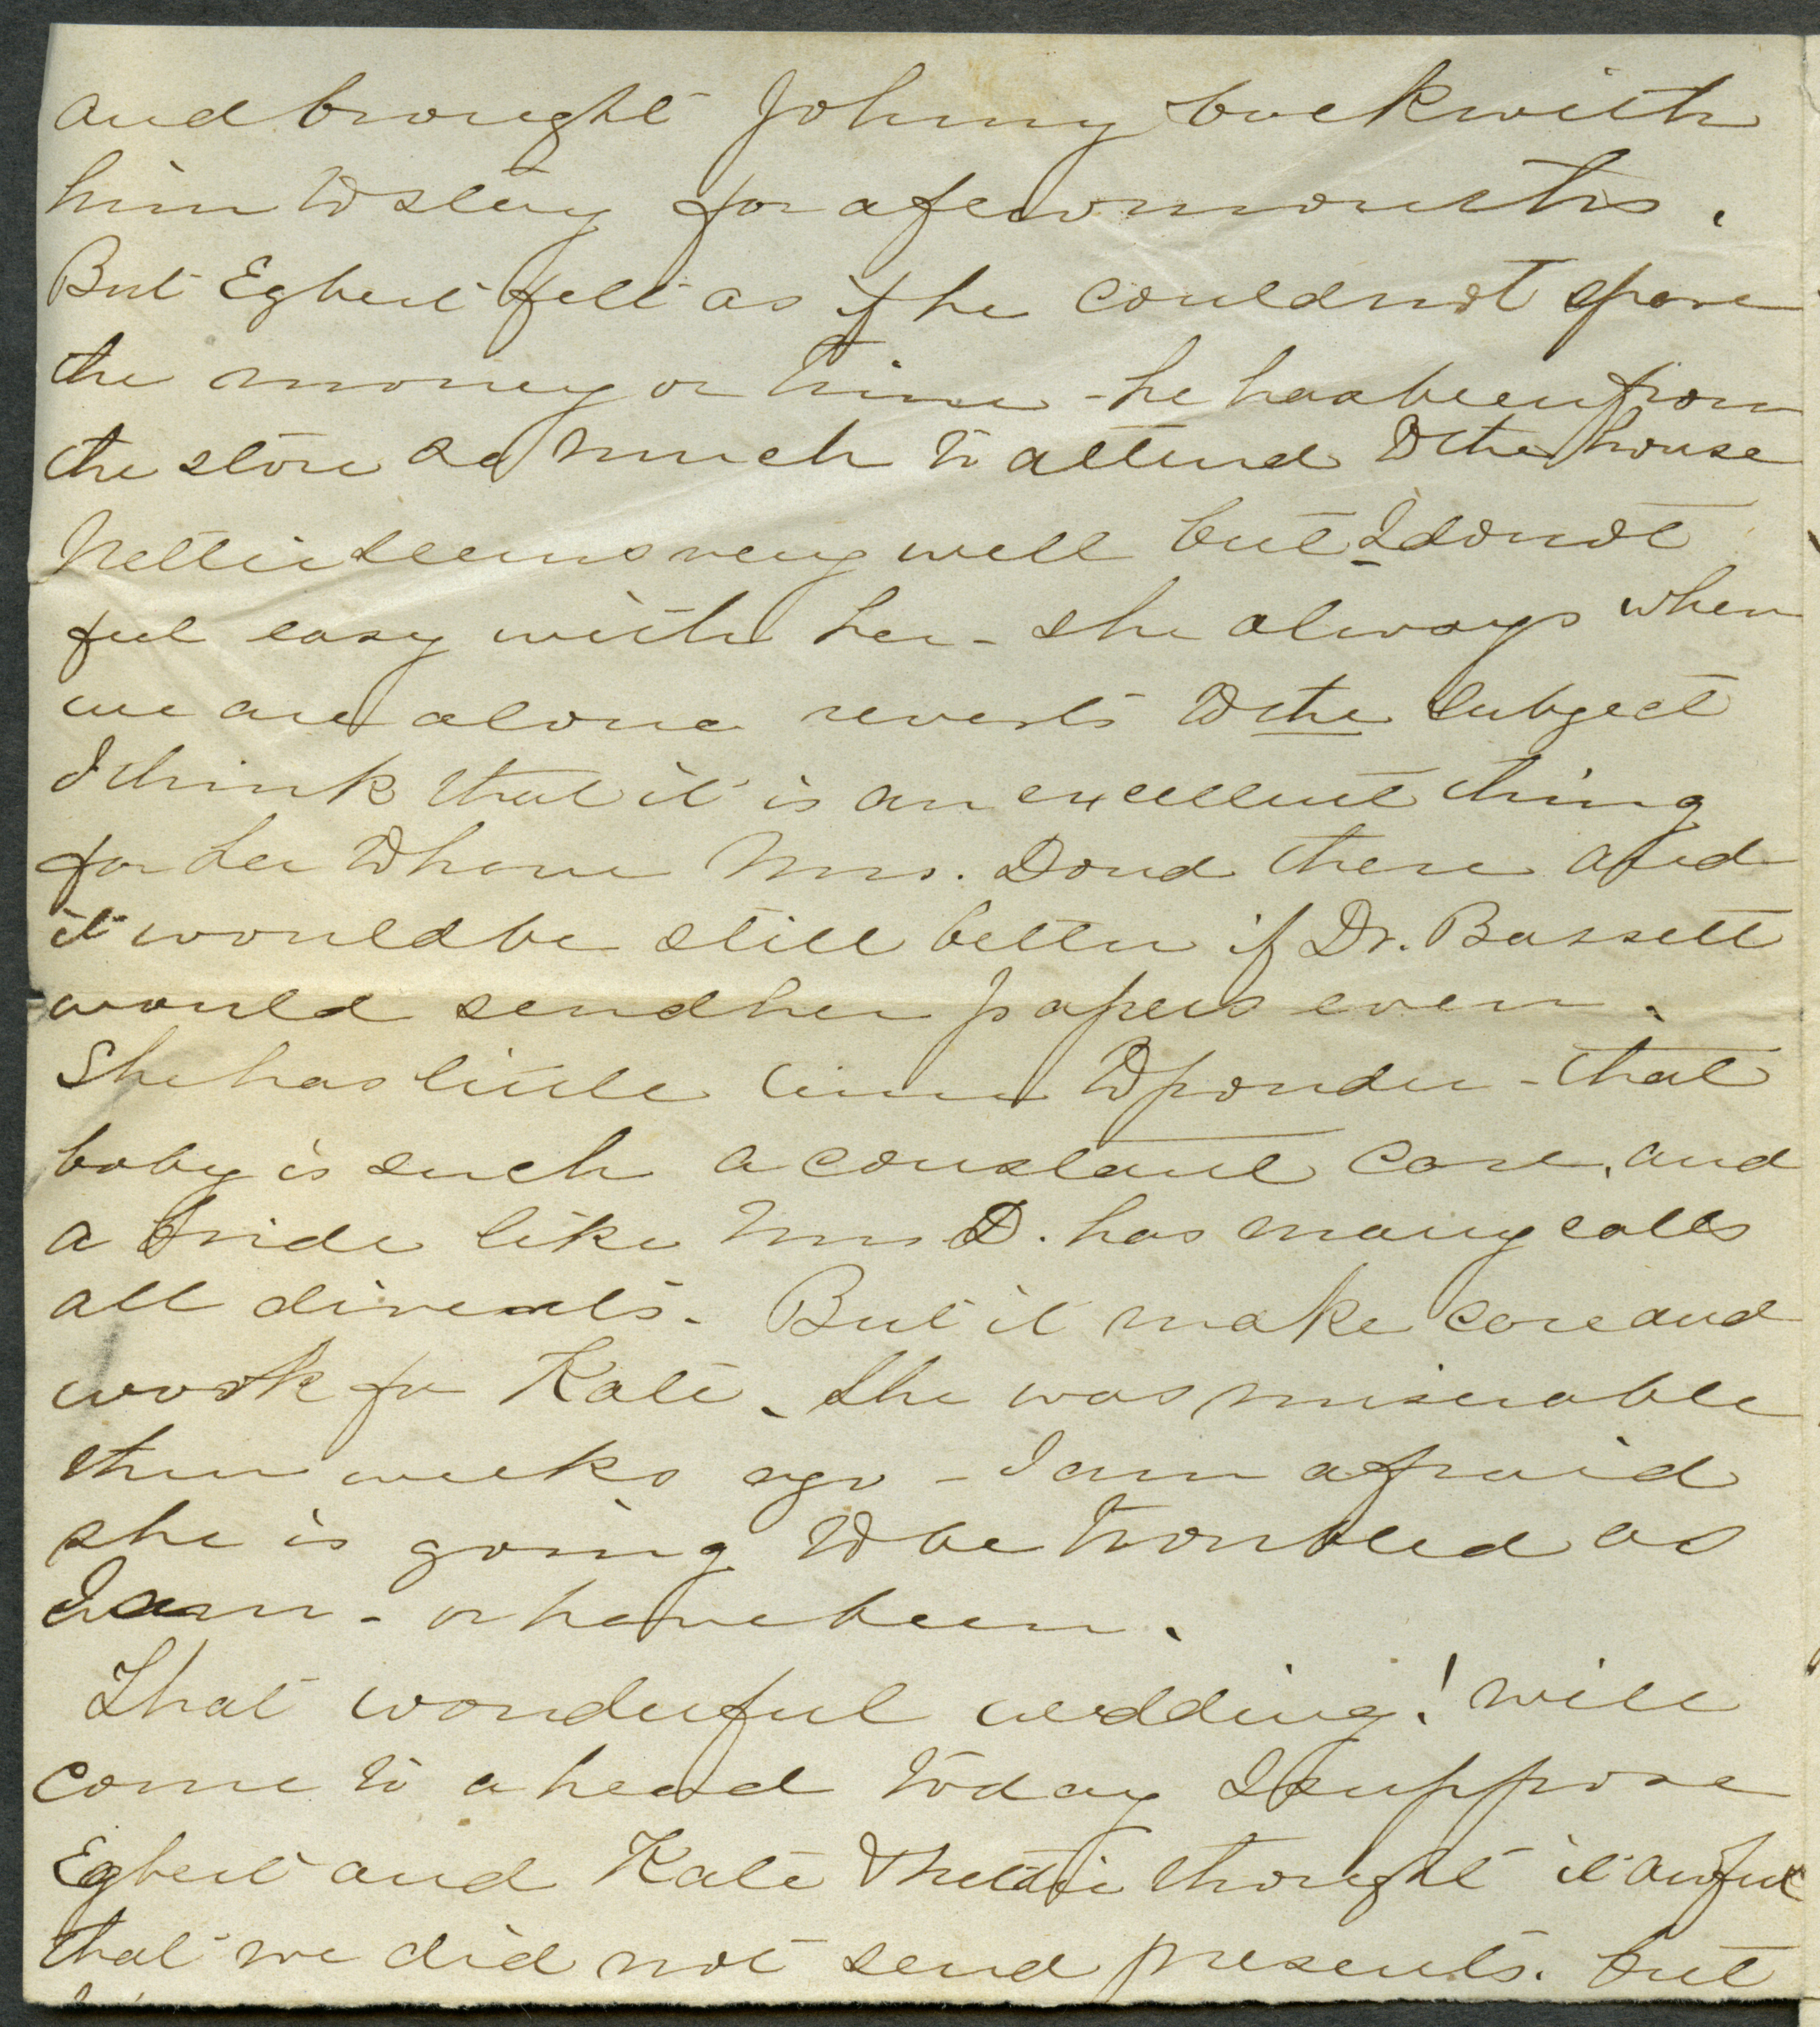 and brought Johnny back with
him to stay for a few months.
But Egbert felt as if he could not spare
the money or time - he has been from
the store so much to attend to the house
Nettie seems very well but I do not
feel easy with her - she always when
we are alone reverts to the subject
I think that it is an excellent thing
for her to have Mrs. Doud there and
it would be still better if Dr. Bassett
would send her papers even.
She has little time to ponder - that
baby is such a constant care, and
a bride like Mrs D. has many calls
all diverts. But it make care and
work for Kate. She was miserable
three weeks ago - I am afraid
she is going to be troubled as
I am - or have been.
That wonderful wedding! will
come to a head today I suppose
Egbert and Kate & Nettie thought it awful
that we did not send presents. but